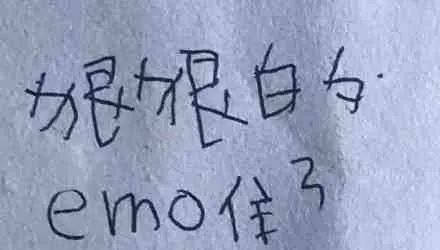 狠狠的
emo住了